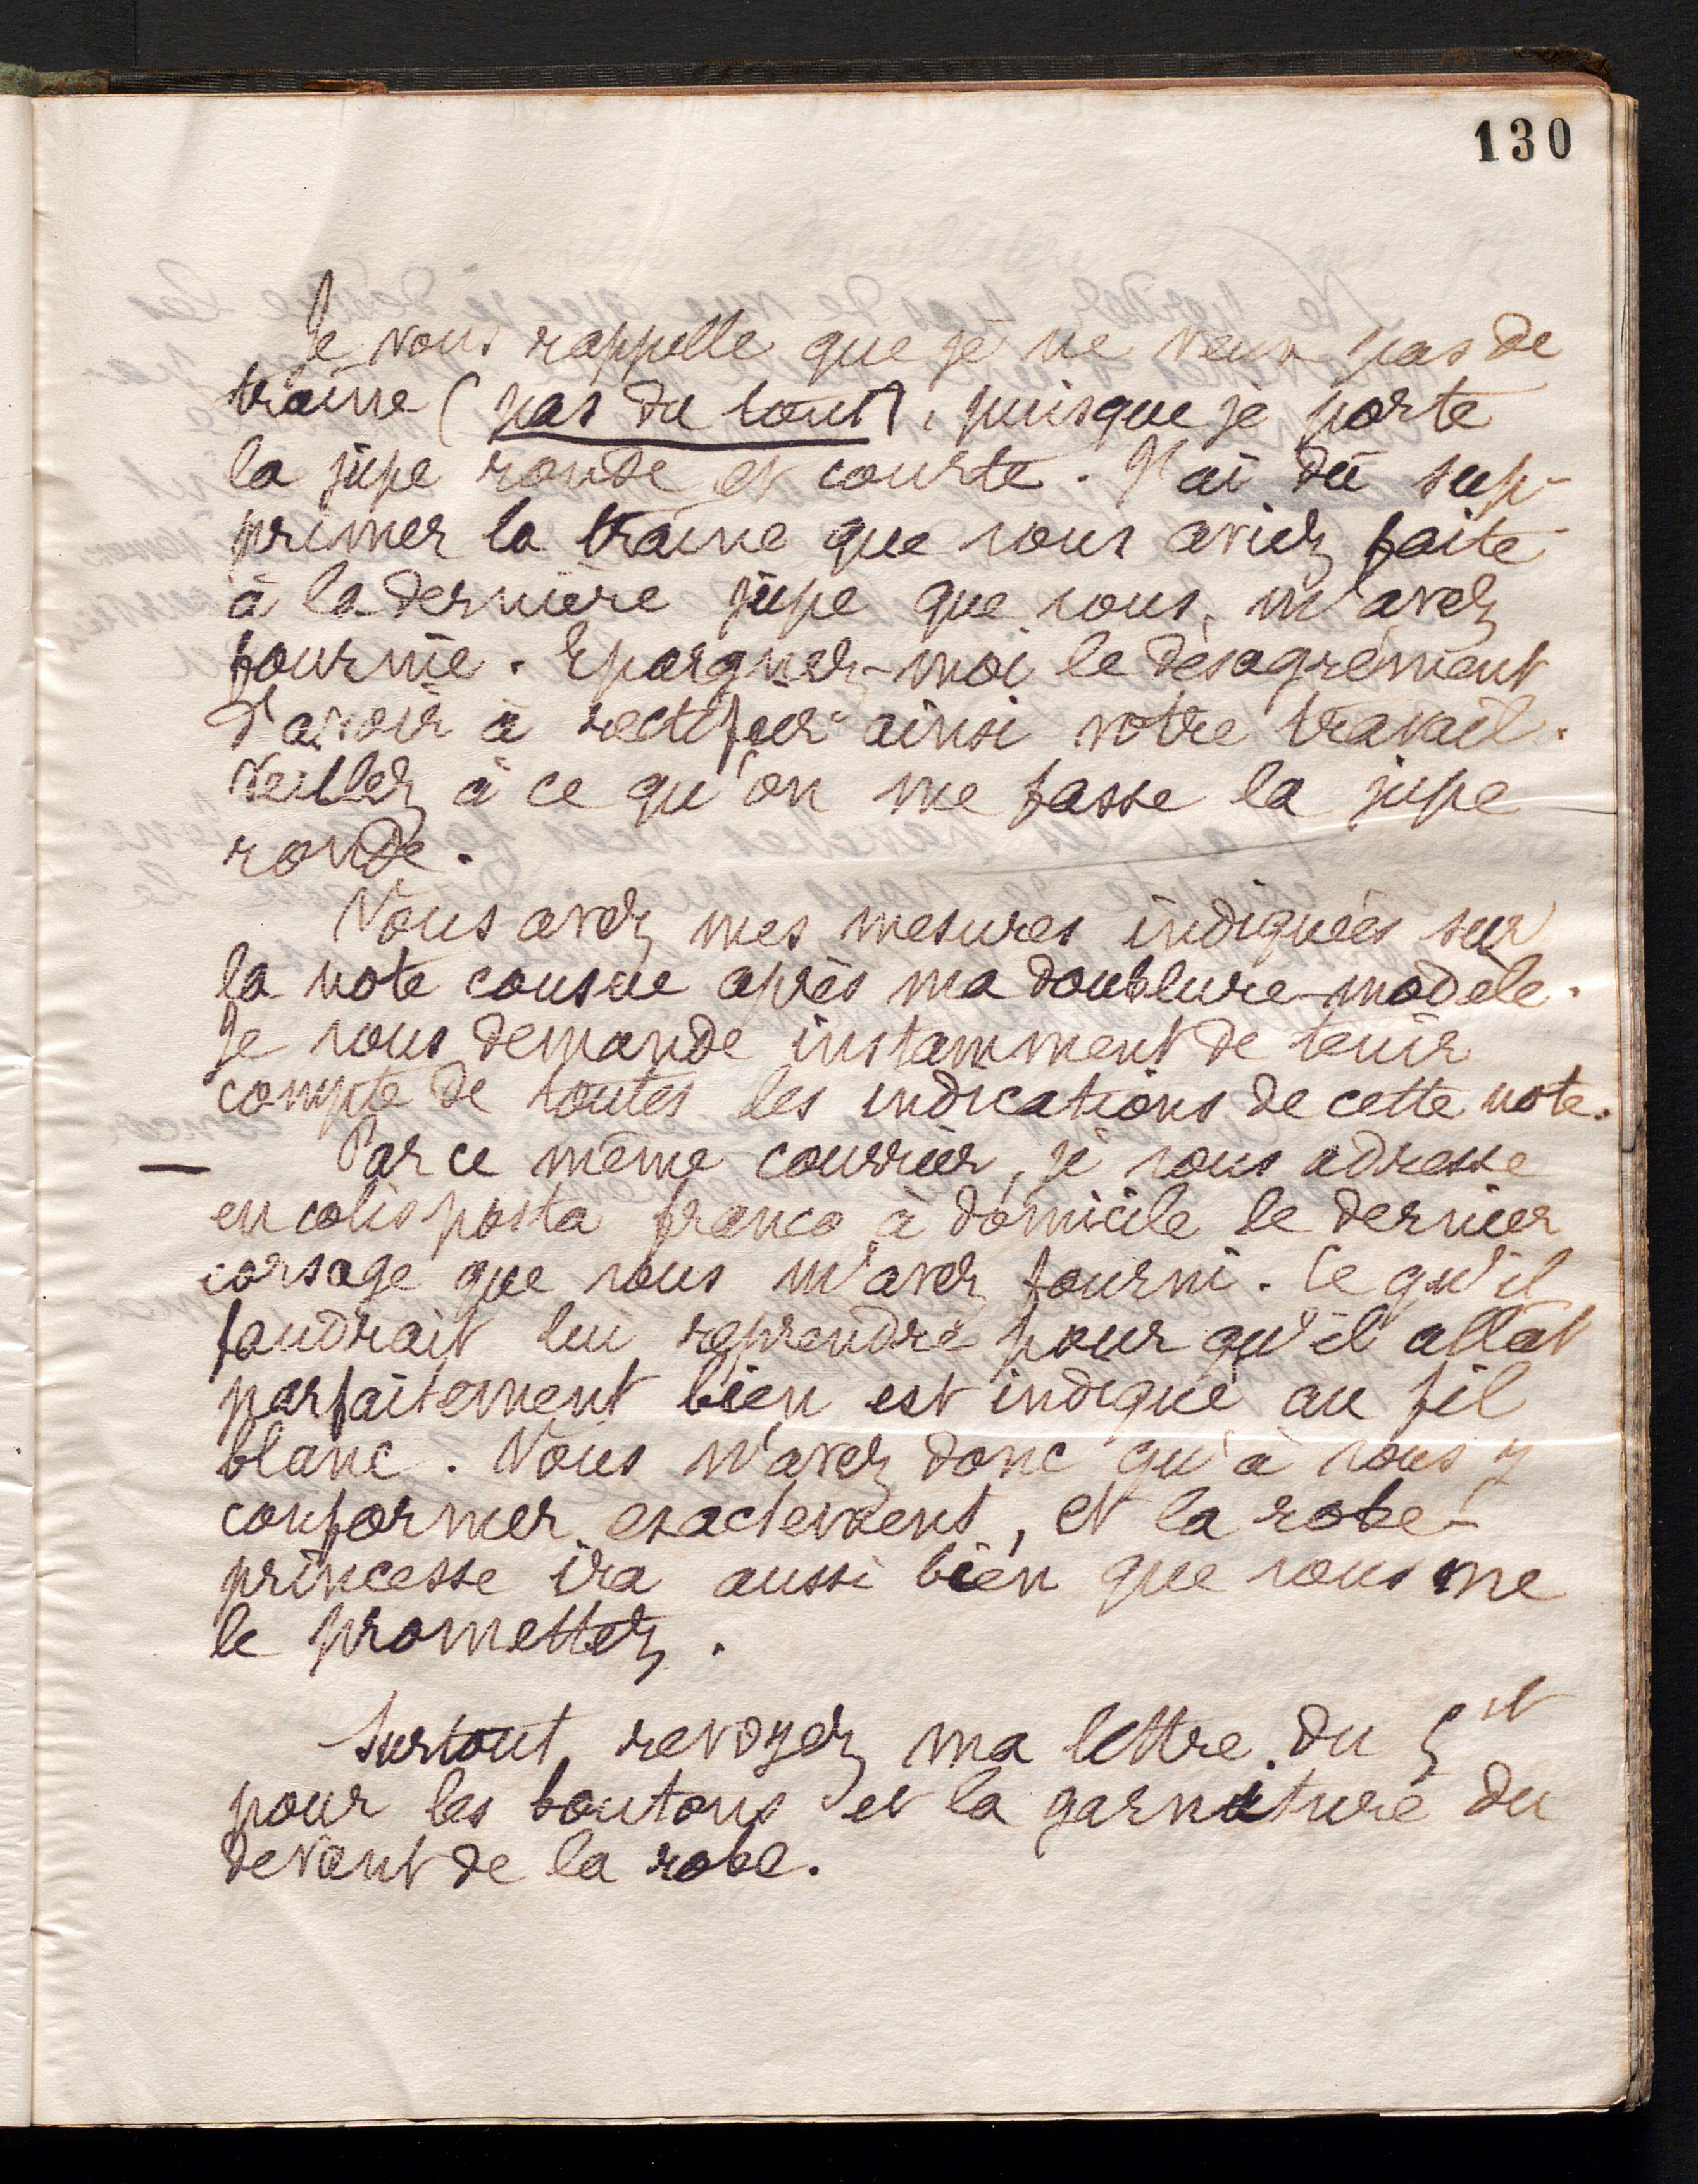 130
Je vous rappelle que je ne veux pas de
traîne (pas du tout), puisque je porte
la jupe ronde et courte. J'ai dû sup-
primer la traîne que vous aviez faite
à la dernière jupe que vous m'avez
fournie. Epargnez-moi le désagrément
d'avoir à rectifier ainsi votre travail.
Veillez à ce qu'on me fasse la jupe
ronde.
Vous avez mes mesures indiquées sur
la note cousue après ma doublure-modèle.
Je vous demande instamment de tenir
compte de toutes les indications de cette note.
— Par ce même courrier, je vous adresse
en colis posta franco à domicile le dernier
corsage que vous m'avez fourni. Ce qu'il
faudrait lui reprendre pour qu'il allât
parfaitement bien est indiqué au fil
blanc. Vous n'avez donc qu'à vous y
conformer exactement, et la robe-
princesse ira aussi bien que vous me
le promettez.
Surtout, revoyez ma lettre du 5 ct
pour les boutons et la garniture du
devant de la robe.